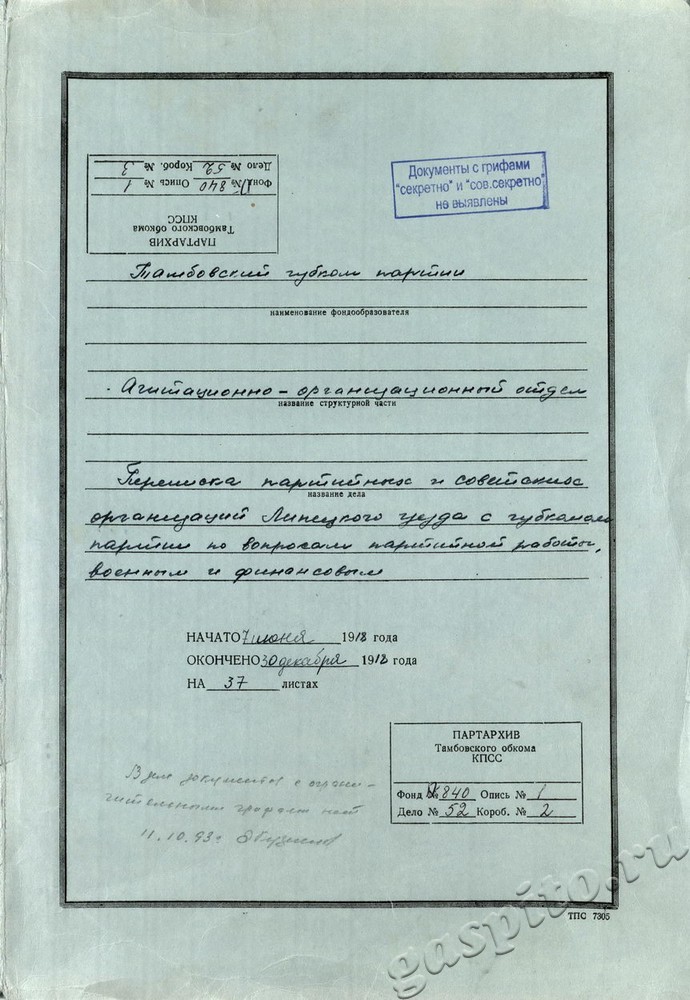 ПАРТАРХИВ
Тамбовского обкома
КПСС
Фонд № 840 Опись № 1
Дело № 52 Короб. № 3
Документы с грифами
"секретно" и "сов.секретно"
не выявлены
Тамбовский губком партии
наименование фондообразователя
Агитационно-организационный отдел
название структурной части
Переписка партийных и советских
название дела
организаций Липецкого уезда с губкомом
партии по вопросам партийной работы,
военным и финансовым
НАЧАТО 7 июня 1918 года
ОКОНЧЕНО 30 декабря 1918 года
НА 37 листах
ПАРТАРХИВ
Тамбовского обкома
КПСС
Фонд № 840 Опись № 1
Дело № 52 Короб. № 2
В деле документов с ограни-
чительными грифами нет
11.10.93г
ТПС 7305
gaspito.ru